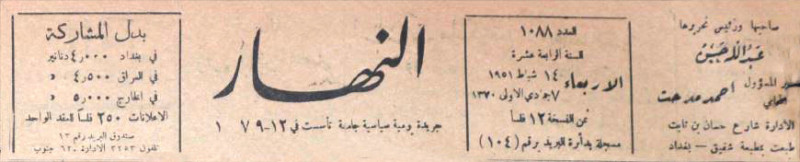 صاحبها ورئيس تحريرها
عبدالله حسن
المدير المسؤول احمد مدحت
المحامي
الادارة شارع حسان بن ثابت
طبعت بمطبعة شفيق - بغداد
العدد ١٠٨٨
السنة الرابعة عشرة
الاربعاء
١٤ شباط ١٩٥١
٧ جمادي الاولى ١٣٧٠
ثمن النسخة ١٢ فلسا
مسجلة بدائرة البريد برقم (١٠٤)
النهار
جريدة يومية سياسية جامعة تأسست في ١٢-٩
بدل المشاركة
في بغداد ٤٫٠٠٠ دنانير
في العراق ٤٫٥٠٠ »
في الخارج ٥٫٠٠٠ »
الاعلانات ٢٥٠ فلسا للعقد الواحد
صندوق البريد رقم ١٣
تلفون ٣٢٥٣ الادارة ٦٢٠ جنوب